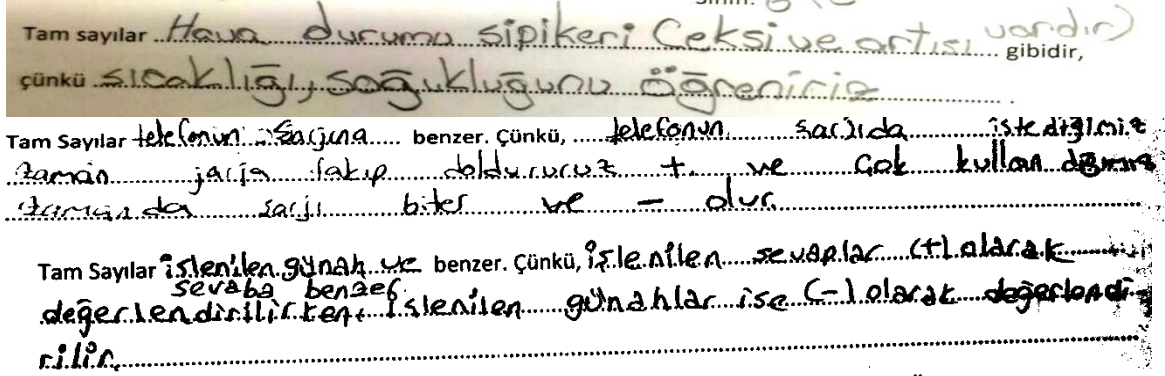 Tam sayılar ..Hava durumu sipikeri (eksi ve artısı vardır) gibidir,
çünkü sıcaklığı, soğukluğunu öğreniriz
Tam Sayılar telefonun şarjına benzer. Çünkü, telefonun sarjıda istediğimiz
zaman jarja takıp doldururuz + ve çok kullandığımız
zamanda sarjı biter ve - olur.
Tam Sayılar işlenilen günah ve benzer. Çünkü, işlenilen sevaplar (+) olarak
sevaba benzer.
değerlendirilirken, işlenilen günahlar ise (-) olarak değerlendi-
rilir.